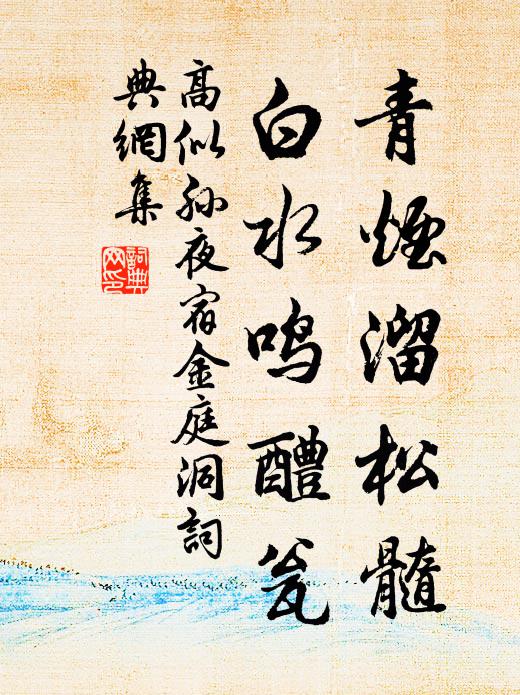 青煙溜松髓
白水鸣醴瓮
高似孙夜宿金庭洞詞
典網集
詞典
网印